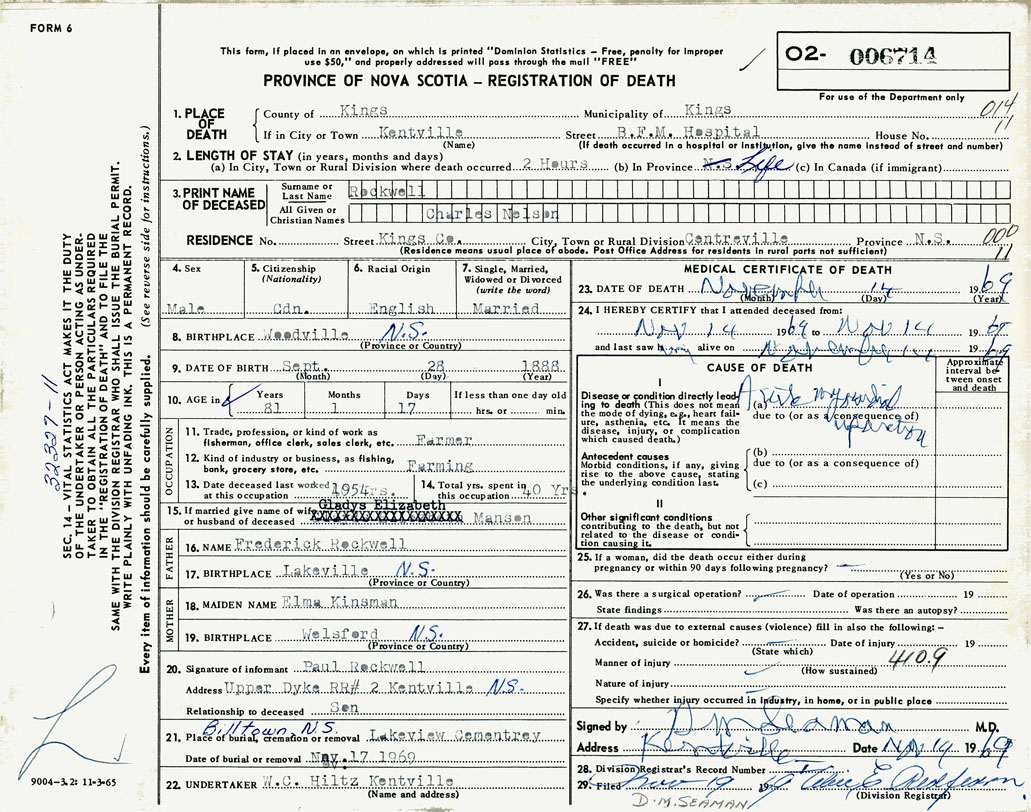 FORM 6
This form, if placed in an envelope, on which is printed "Dominion Statistics – Free, penalty for improper
use $50," and properly addressed will pass through the mail "FREE"
PROVINCE OF NOVA SCOTIA – REGISTRATION OF DEATH
02- 006714
For use of the Department only
014
11
1. PLACE OF DEATH
County of Kings Municipality of Kings
If in City or Town Kentville Street B.F.M. Hospital House No.
(Name) (If death occurred in a hospital or institution, give the name instead of street and number)
2. LENGTH OF STAY (in years, months and days)
(a) In City, Town or Rural Division where death occurred 2 Hours (b) In Province N.S. Life (c) In Canada (if immigrant)
3. PRINT NAME OF DECEASED
Surname or Last Name Rockwell
All Given or Christian Names Charles Nelson
RESIDENCE No. Street Kings Co. City, Town or Rural Division Centreville Province N.S.
(Residence means usual place of abode. Post Office Address for residents in rural parts not sufficient)
000
11
4. Sex
Male
5. Citizenship (Nationality)
Cdn.
6. Racial Origin
English
7. Single, Married, Widowed or Divorced (write the word)
Married
8. BIRTHPLACE Woodville N.S.
(Province or Country)
9. DATE OF BIRTH Sept. 28 1888
(Month) (Day) (Year)
10. AGE in Years Months Days If less than one day old
81 1 17 hrs. or min.
OCCUPATION
11. Trade, profession, or kind of work as
fisherman, office clerk, sales clerk, etc. Farmer
12. Kind of industry or business, as fishing,
bank, grocery store, etc. Farming
13. Date deceased last worked at this occupation 1954rs.
14. Total yrs. spent in this occupation 40 Yrs.
15. If married give name of wife or husband of deceased Gladys Elizabeth XXXXXXXXXXXXXXXXX Manson
FATHER
16. NAME Frederick Rockwell
17. BIRTHPLACE Lakeville N.S.
(Province or Country)
MOTHER
18. MAIDEN NAME Elma Kinsman
19. BIRTHPLACE Welsford N.S.
(Province or Country)
20. Signature of informant Paul Rockwell
Address Upper Dyke RR# 2 Kentville N.S.
Relationship to deceased Son
Billtown, N.S.
21. Place of burial, cremation or removal Lakeview Cementrey
Date of burial or removal Nov. 17 1969
22. UNDERTAKER W.C. Hiltz Kentville
(Name and address)
MEDICAL CERTIFICATE OF DEATH
23. DATE OF DEATH November 14 1969
(Month) (Day) (Year)
24. I HEREBY CERTIFY that I attended deceased from:
Nov 14 1969 to Nov 14 19
and last saw alive on November 14 1969
CAUSE OF DEATH
Approximate interval between onset and death
I
Disease or condition directly leading to death (This does not mean the mode of dying, e.g., heart failure, asthenia, etc. It means the disease, injury, or complication which caused death.)
(a) Acute myocardial
due to (or as a consequence of)
infarction
Antecedent causes
Morbid conditions, if any, giving rise to the above cause, stating the underlying condition last.
(b)
due to (or as a consequence of)
(c)
II
Other significant conditions
contributing to the death, but not related to the disease or condition causing it.
25. If a woman, did the death occur either during
pregnancy or within 90 days following pregnancy?
(Yes or No)
26. Was there a surgical operation? Date of operation 19
State findings Was there an autopsy?
27. If death was due to external causes (violence) fill in also the following: –
Accident, suicide or homicide? Date of injury 19
(State which)
410.9
Manner of injury
(How sustained)
Nature of injury
Specify whether injury occurred in industry, in home, or in public place
Signed by D M Seaman M.D.
Address Kentville Date Nov 19 1969
28. Division Registrar's Record Number
29. Filed Nov 19 19
(Division Registrar)
D.M. SEAMAN
SEC. 14 – VITAL STATISTICS ACT MAKES IT THE DUTY
OF THE UNDERTAKER OR PERSON ACTING AS UNDER-
TAKER TO OBTAIN ALL THE PARTICULARS REQUIRED
IN THE "REGISTRATION OF DEATH" AND TO FILE THE
SAME WITH THE DIVISION REGISTRAR WHO SHALL ISSUE THE BURIAL PERMIT.
WRITE PLAINLY WITH UNFADING INK. THIS IS A PERMANENT RECORD.
Every item of information should be carefully supplied. (See reverse side for instructions.)
9004–3.2: 11-3-65